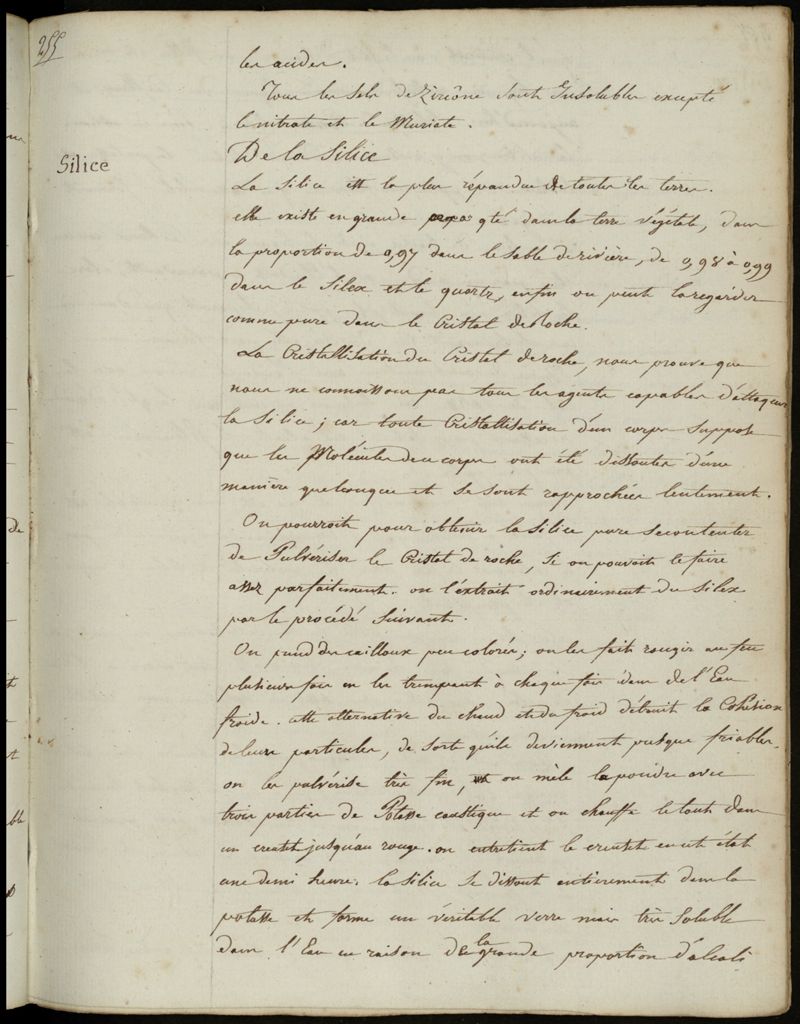 255
les acides.
Tous les sels de Zircône sont Insolubles excepté
le nitrate et le Muriate.
Silice
De la Silice
La Silice est la plus répandue de toutes les terres.
elle existe en grande qté dans la terre végétale, dans
la proportion de 0,97 dans le sable de rivière, de 0,98 à 0,99
dans le Silex et le quartz, enfin on peut la regarder
comme pure dans le Cristal de Roche.
La Cristallisation du Cristal de roche, nous prouve que
nous ne connoissons pas tous les agents capables d'attaquer
la Silice; car toute Cristallisation d'un corps suppose
que les Molécules du corps ont été dissoutes d'une
manière quelconque et se sont rapprochées lentement.
On pourroit pour obtenir la silice pure se contenter
de Pulvériser le Cristal de roche, Si on pouvoit le faire
assez parfaitement. on l'extrait ordinairement du Silex
par le procédé suivant.
On prend des cailloux peu colorés; on les fait rougir au feu
plusieurs fois en les trempant à chaque fois dans de l'Eau
froide. cette alternative du chaud et du froid détruit la Cohésion
de leurs particules, de sorte qu'ils deviennent presque friables.
on les pulvérise très fin, on mêle la poudre avec
trois parties de Potasse caustique et on chauffe le tout dans
un creuset jusqu'au rouge. on entretient le creuset en cet état
une demi heure. la silice se dissout entierement dans la
potasse et forme un véritable verre mais très soluble
dans l'Eau en raison de la grande proportion d'alcali